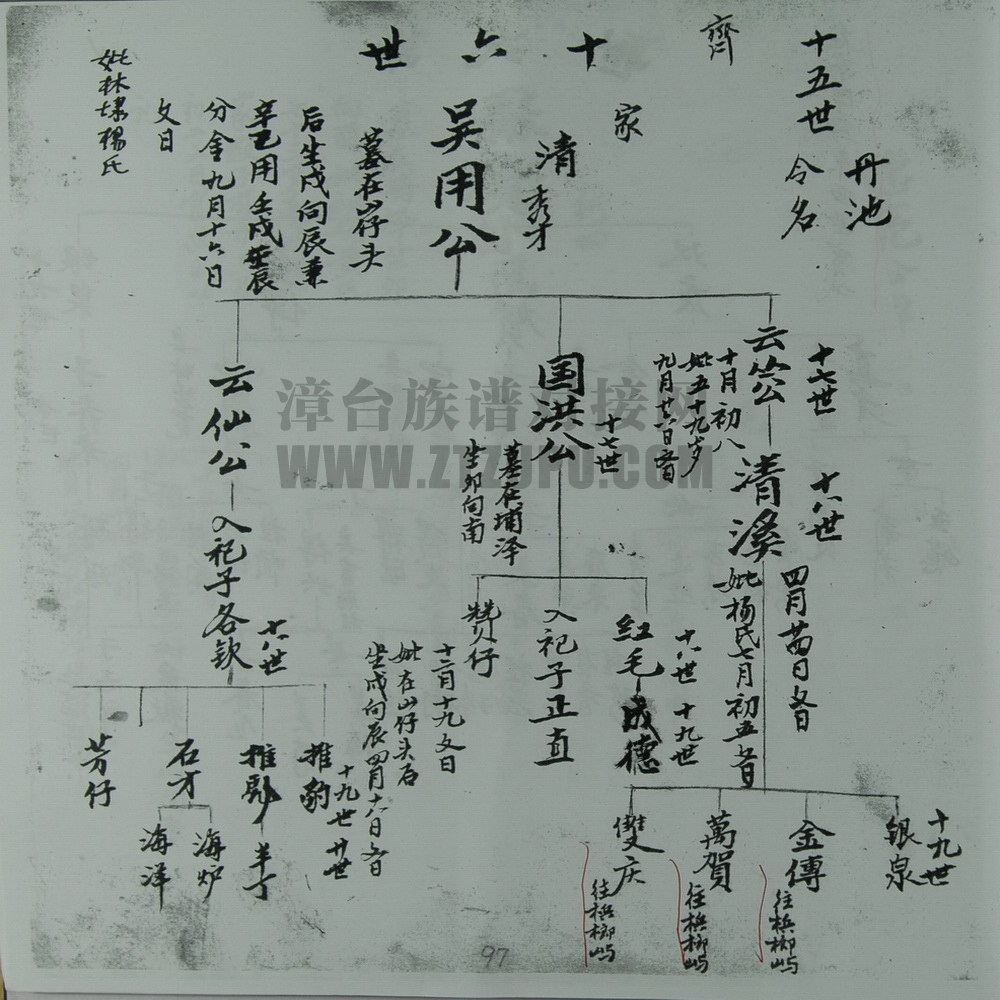 十五世
丹池
令名
齊
十六世
家
清
秀才
吴用公
墓在山仔头
后坐戍向辰兼
辛乙用壬戍
分金九月十六日
文日
妣林埭楊氏
十七世
云公
十月初八
妣五十九岁
十八世
清溪
四月
妣杨氏七月初五
十九世
银泉
金傳
往梹榔屿
萬賀
往梹榔屿
雙庆
往梹榔屿
国洪公
十七世
墓在埔泽
坐卯向南
红毛
成德
十八世
十九世
入祀子正直
赞仔
十二月十九文日
妣在山仔头后
坐戍向辰四月十六日
云仙公
入祀子各欽
十八世
推豹
推彪
羊丁
石才
海炉
海洋
芳仔
十九世
廿世
97
漳台族谱对接网
WWW.ZTZUPU.COM